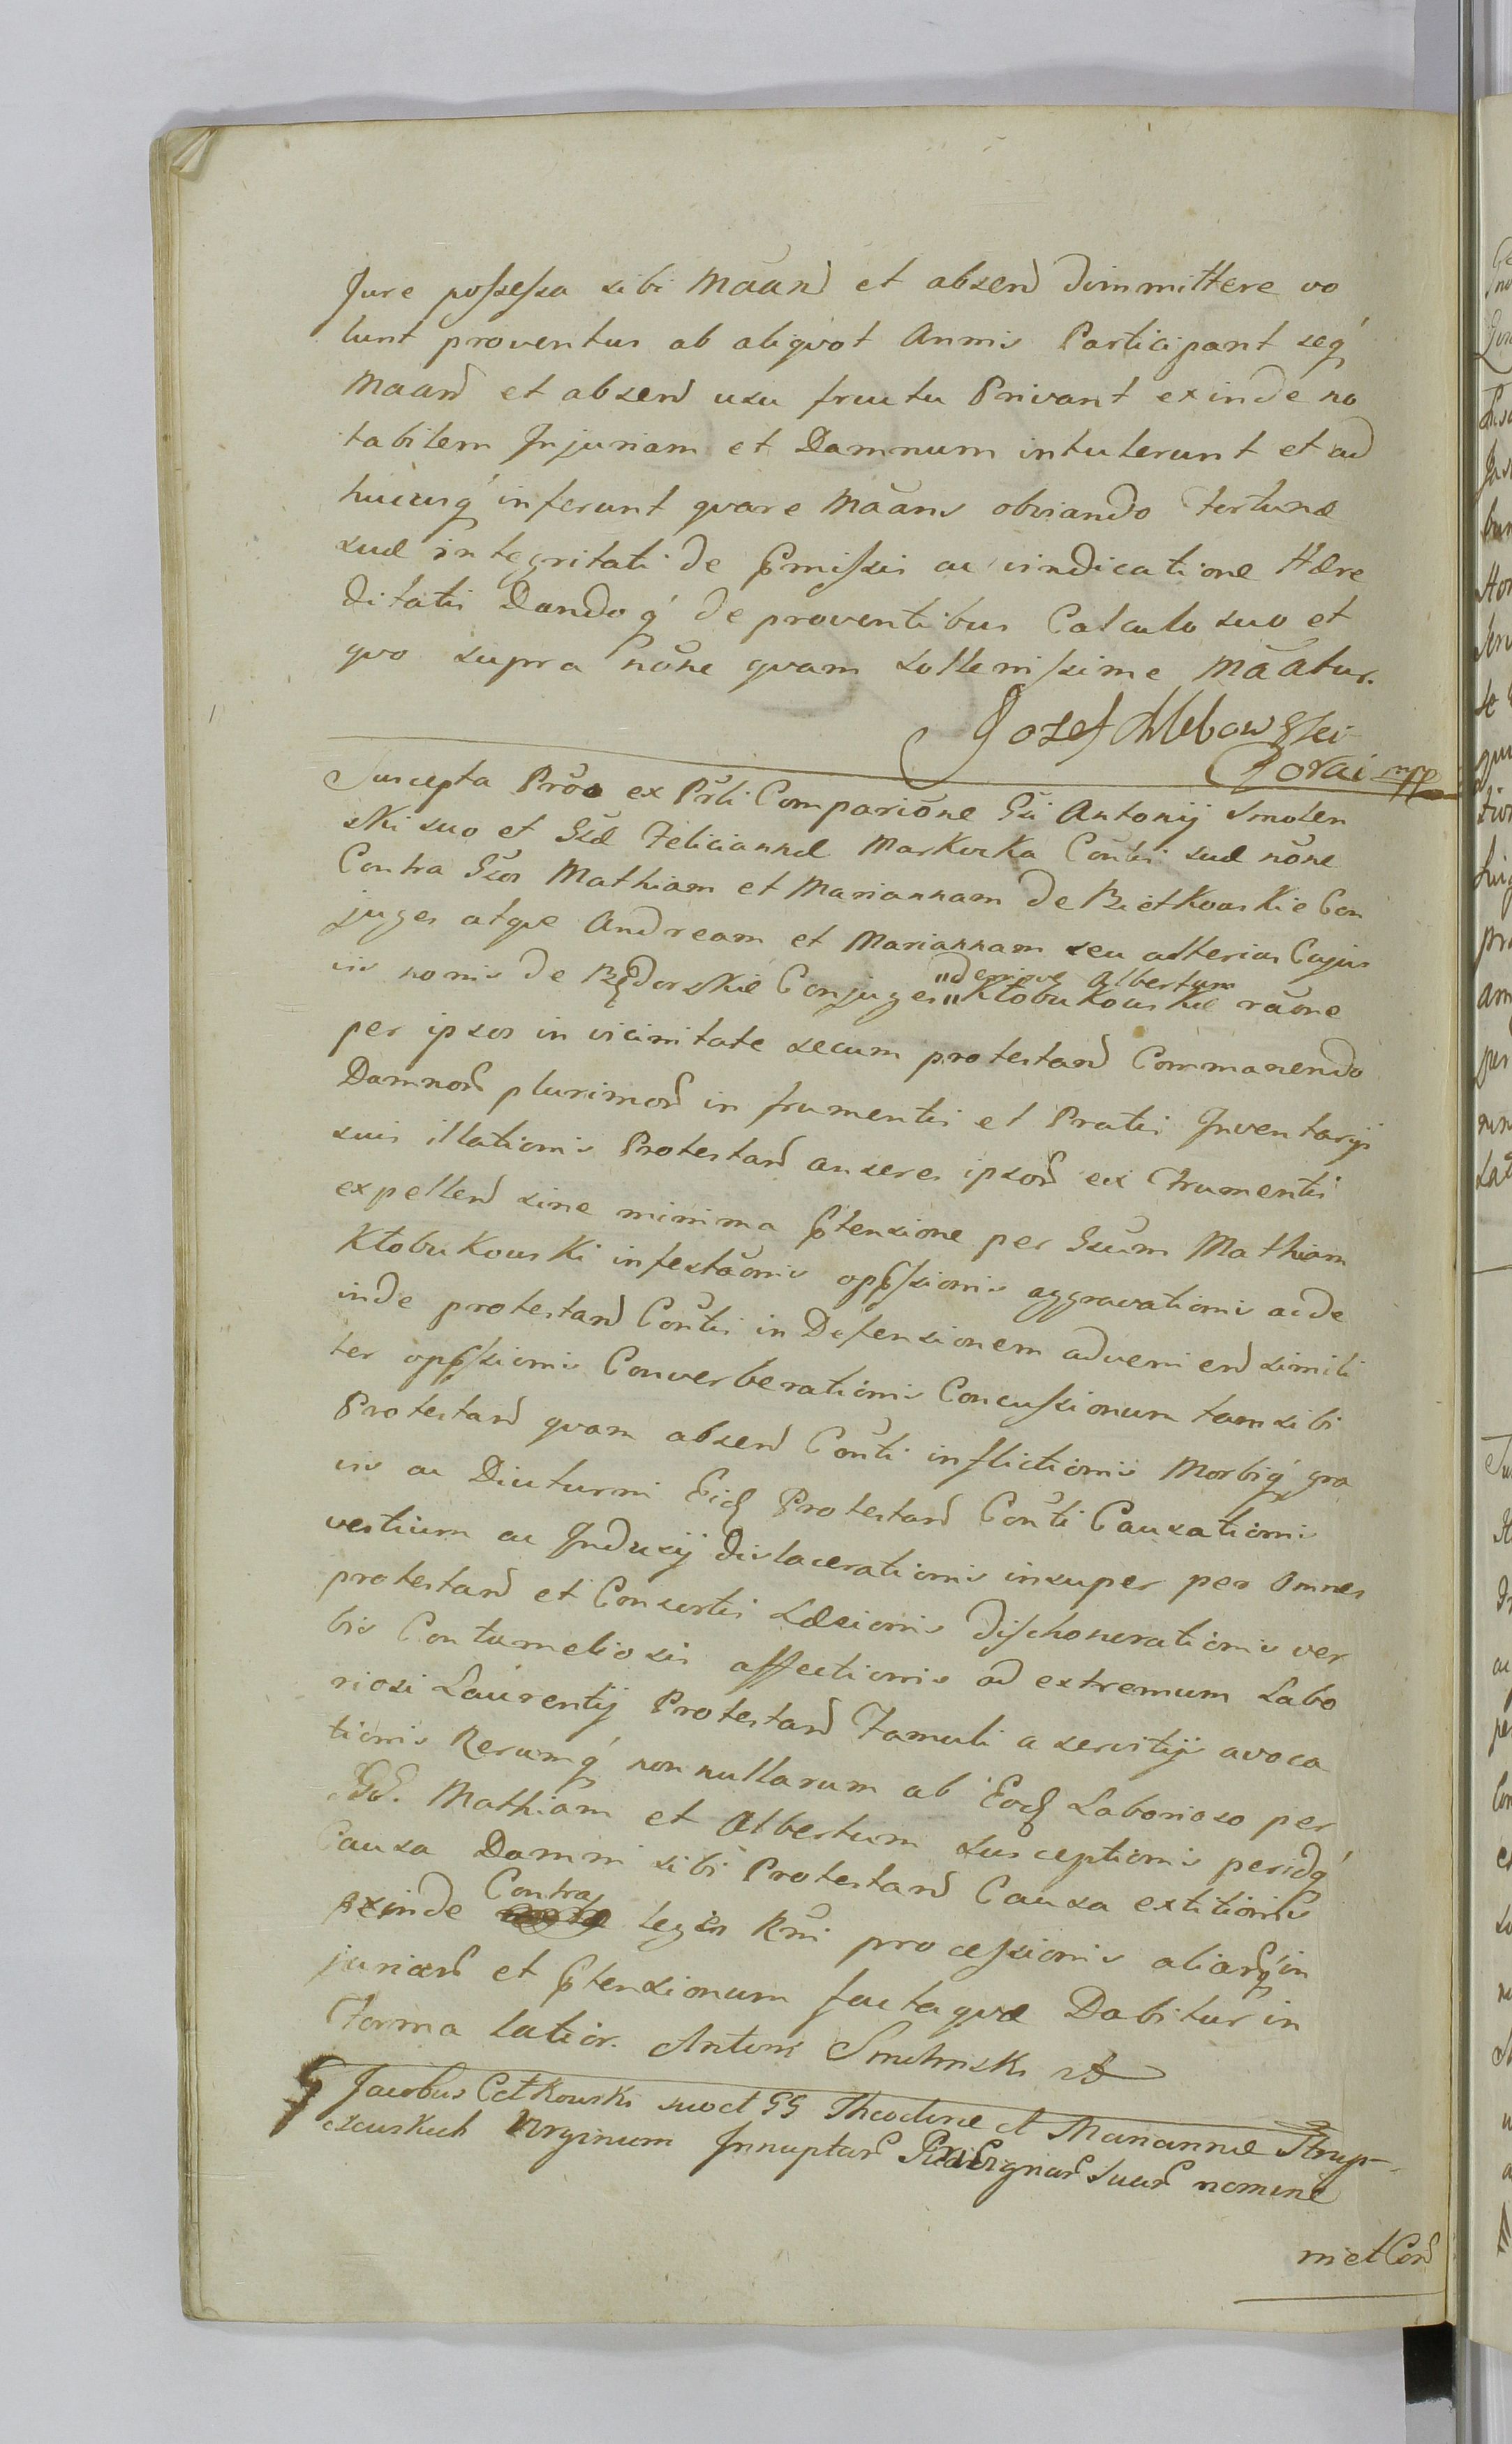 Jure possessa sibi Māand et absend dimmittere vo
lunt proventus ab aliqvot Annis Participant seq́
Maand et absend usu fructu Privant exinde no
tabilem Injuriam et Damnum intulerunt et ad
hucusq́ inferunt qvare Māans obviando fortunæ
suæ integritati de præmissis ac vindicatione Hære
ditatis Dandoq́ de proventibus Calculo suo et
qvo supra nōne qvam sollenissime Māatur.
Jozef Chlebowski
Porai mpp
Suscepta Prōō ex Pr̄li Comparitōne Gsi Antonij Smolen
ski suo et Gsæ Felicianæ Conti suæ nōne
Contra Gsos Mathiam et Mariannam de Con
juges atqve Andream et Mariannam seu alterius Cujus
vis nomis de Conjuges "denique Albertum
" Kłobukowskie raōne
per ipsos in vicinitate secum protestand Commanendo
Damnor plurimor in frumentis et Pratis Inventarijs
suis illationis Protestand anseres ipsor ex frumentis
expellend sine minima prætensione per Gsum Mathiam
Kłobukowski infestaōnis oppræssionis aggravationis acde
inde protestand Contis in Defensionem advenend simili
ter oppræssionis Converberationis Concussionum tam sibi
Protestand qvam absend Conti inflictionis Morbiq́ gra
vis ac Diuturni Eid Protestand Conti Causationis
vestium ac Indusij dislacerationis insuper per Omnes
protestand et Consortis Læsionis dischonorationis ver
bis Contumeliosis affectionis ad extremum Labo
riosi Laurentij Protestand Famuli a servitijs avoca
tionis Rerumq́ non nullarum ab Eod Laborioso per
GG. Mathiam et Albertum susceptionis peridq́
Causa Damni sibi Protestand Causa extitionis
exinde Contra leges Rni processionis aliarq́ in
juriar et prætensionum factaqvæ Dabitur in
forma latior. Antoni Smolenski
Jacobus Cetkowski suo et GG Theodoræ et Mariannæ Strup
czewskich Virginum Innuptar Privignar suar nomine
ni et Cor